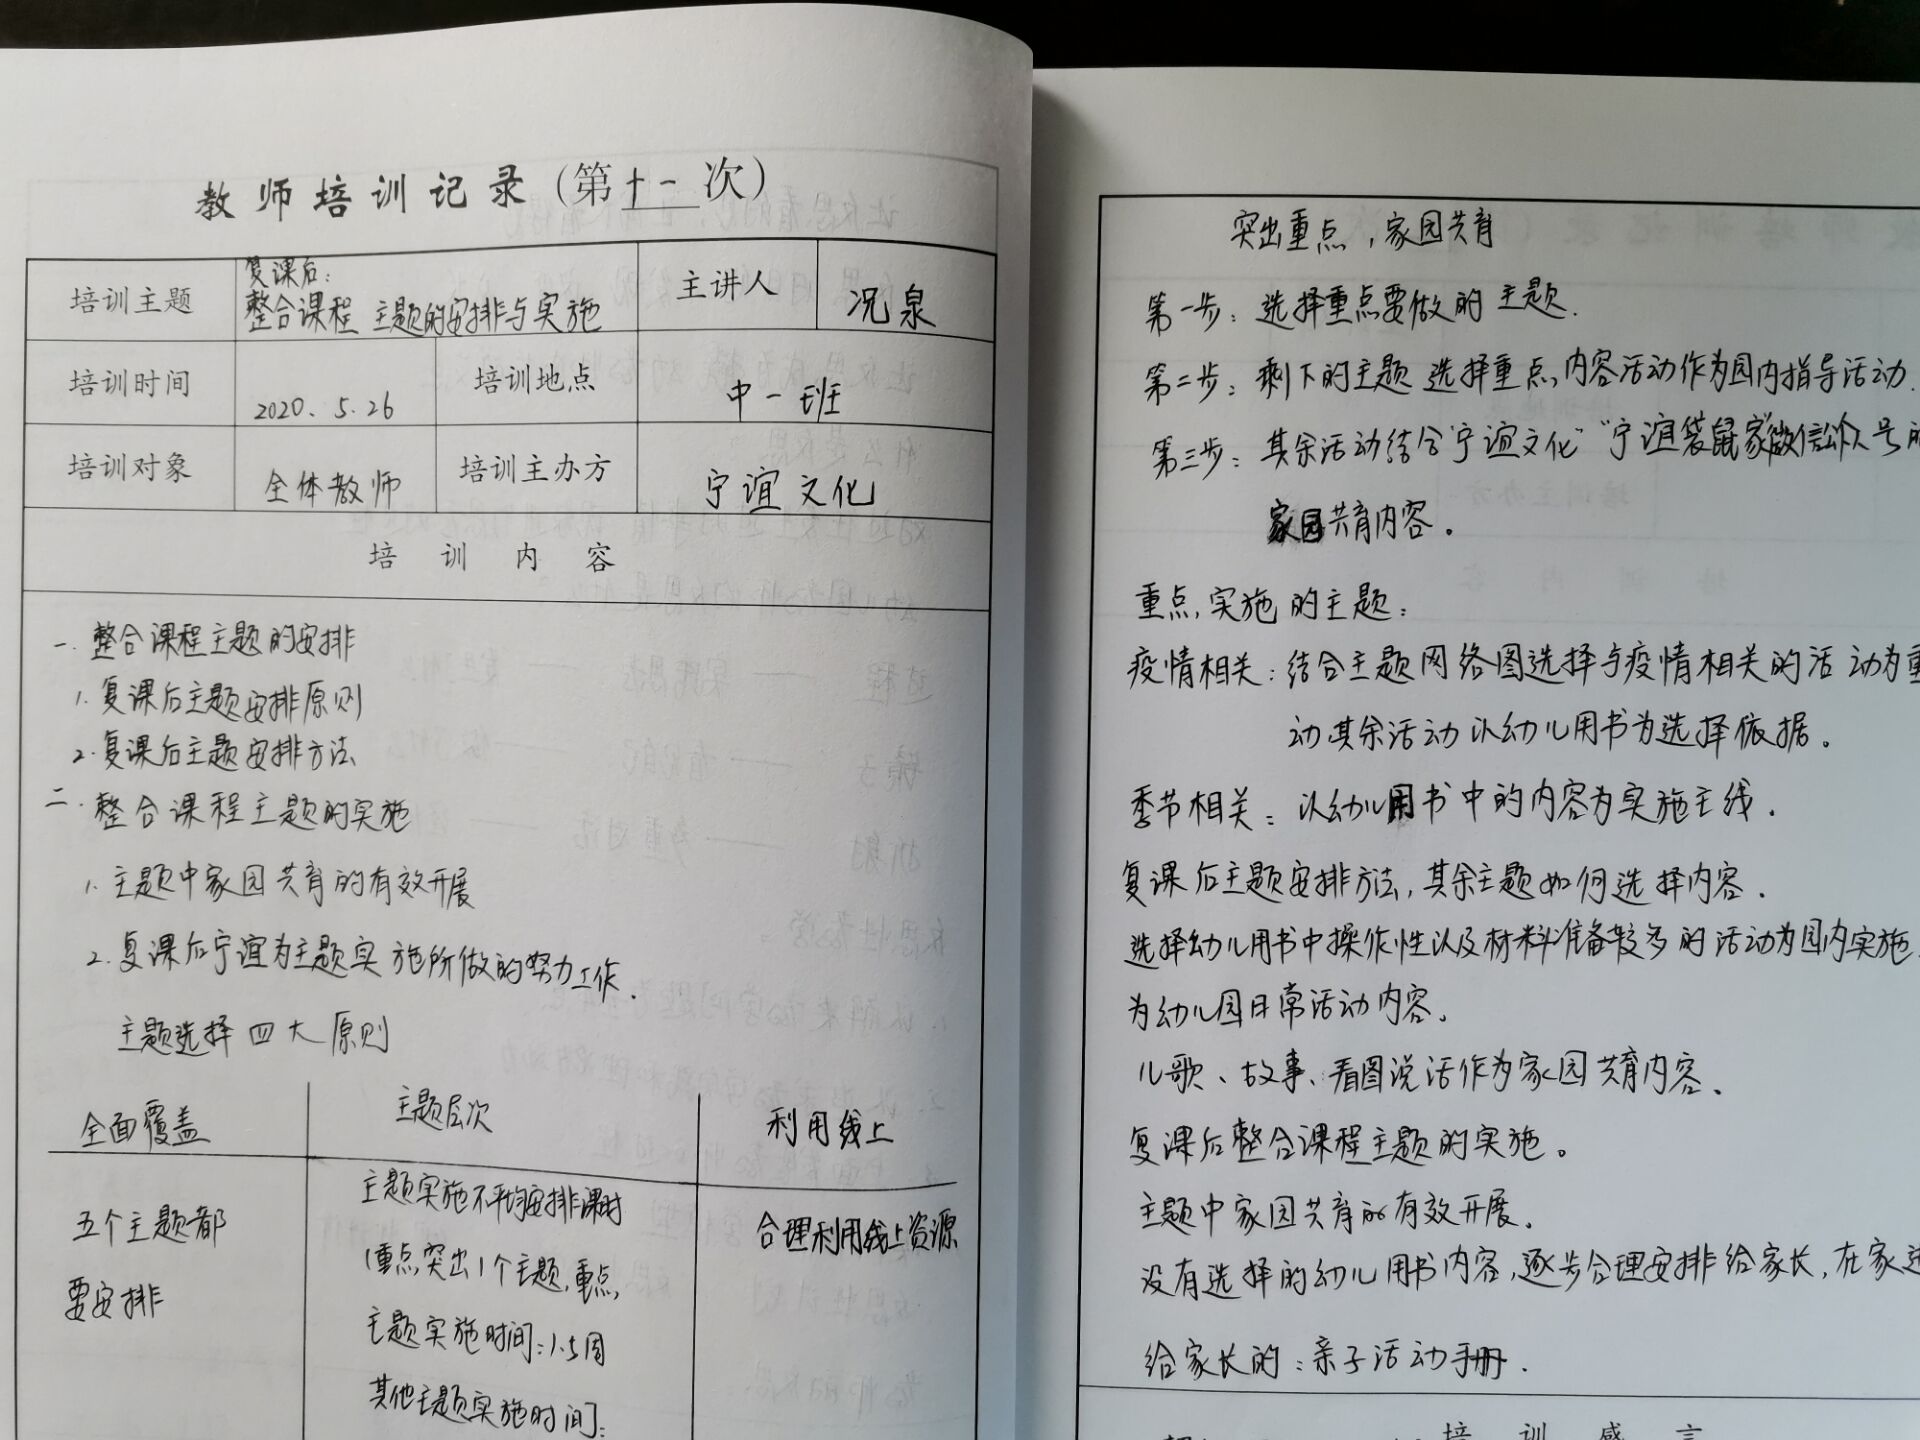 教师培训记录（第十一次）
培训主题
复课后：
整合课程 主题的安排与实施
主讲人
况泉
培训时间
2020.5.26
培训地点
中一班
培训对象
全体教师
培训主办方
宁谊文化
培训内容
一.整合课程主题的安排
1.复课后主题安排原则
2.复课后主题安排方法
二.整合课程主题的实施
1.主题中家园共育的有效开展
2.复课后宁谊为主题实施所做的努力工作.
主题选择四大原则
全面覆盖
主题层次
利用线上
五个主题都
要安排
主题实施不平均安排课时
(重点突出1个主题,重点
主题实施时间:1.5周
其他主题实施时间:
合理利用线上资源
突出重点,家园共育
第一步:选择重点要做的主题.
第二步:剩下的主题 选择重点内容活动作为园内指导活动.
第三步:其余活动结合"宁谊文化""宁谊袋鼠家微信公众号的
家园共育内容。
重点实施的主题:
疫情相关:结合主题网络图选择与疫情相关的活动为重
动其余活动以幼儿用书为选择依据。
季节相关:以幼儿用书中的内容为实施主线.
复课后主题安排方法,其余主题如何选择内容.
选择幼儿用书中操作性以及材料准备较多的活动为园内实施
为幼儿园日常活动内容。
儿歌、故事、看图说话作为家园共育内容。
复课后整合课程主题的实施。
主题中家园共育的有效开展。
没有选择的幼儿用书内容,逐步合理安排给家长,在家进
给家长的:亲子活动手册.
培训感言